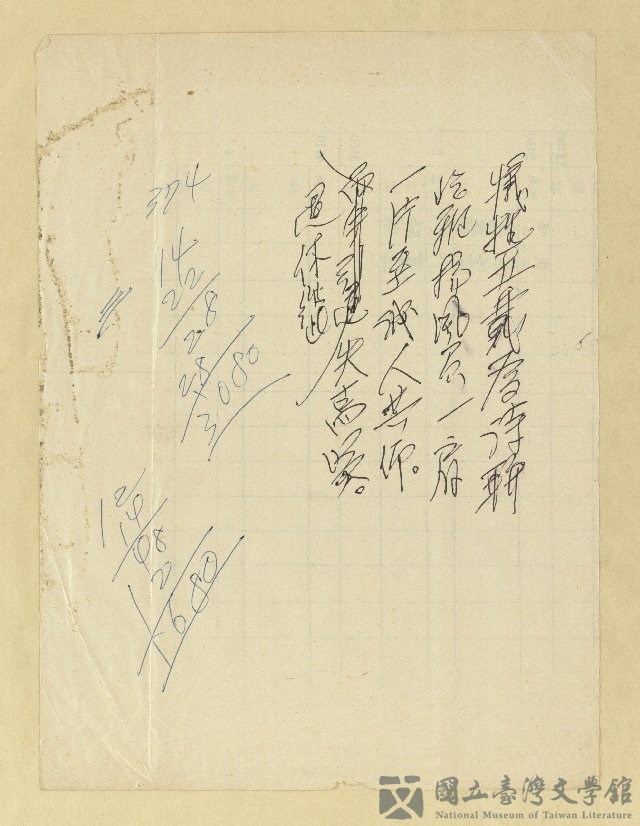 犧牲五載為詩聯
吟雅揚風負一肩
一片至誠人共仰。
失高賢。
退休
374
14
22
28
28
3080
12
14
48
12
1680
國立臺灣文學館
National Museum of Taiwan Literature